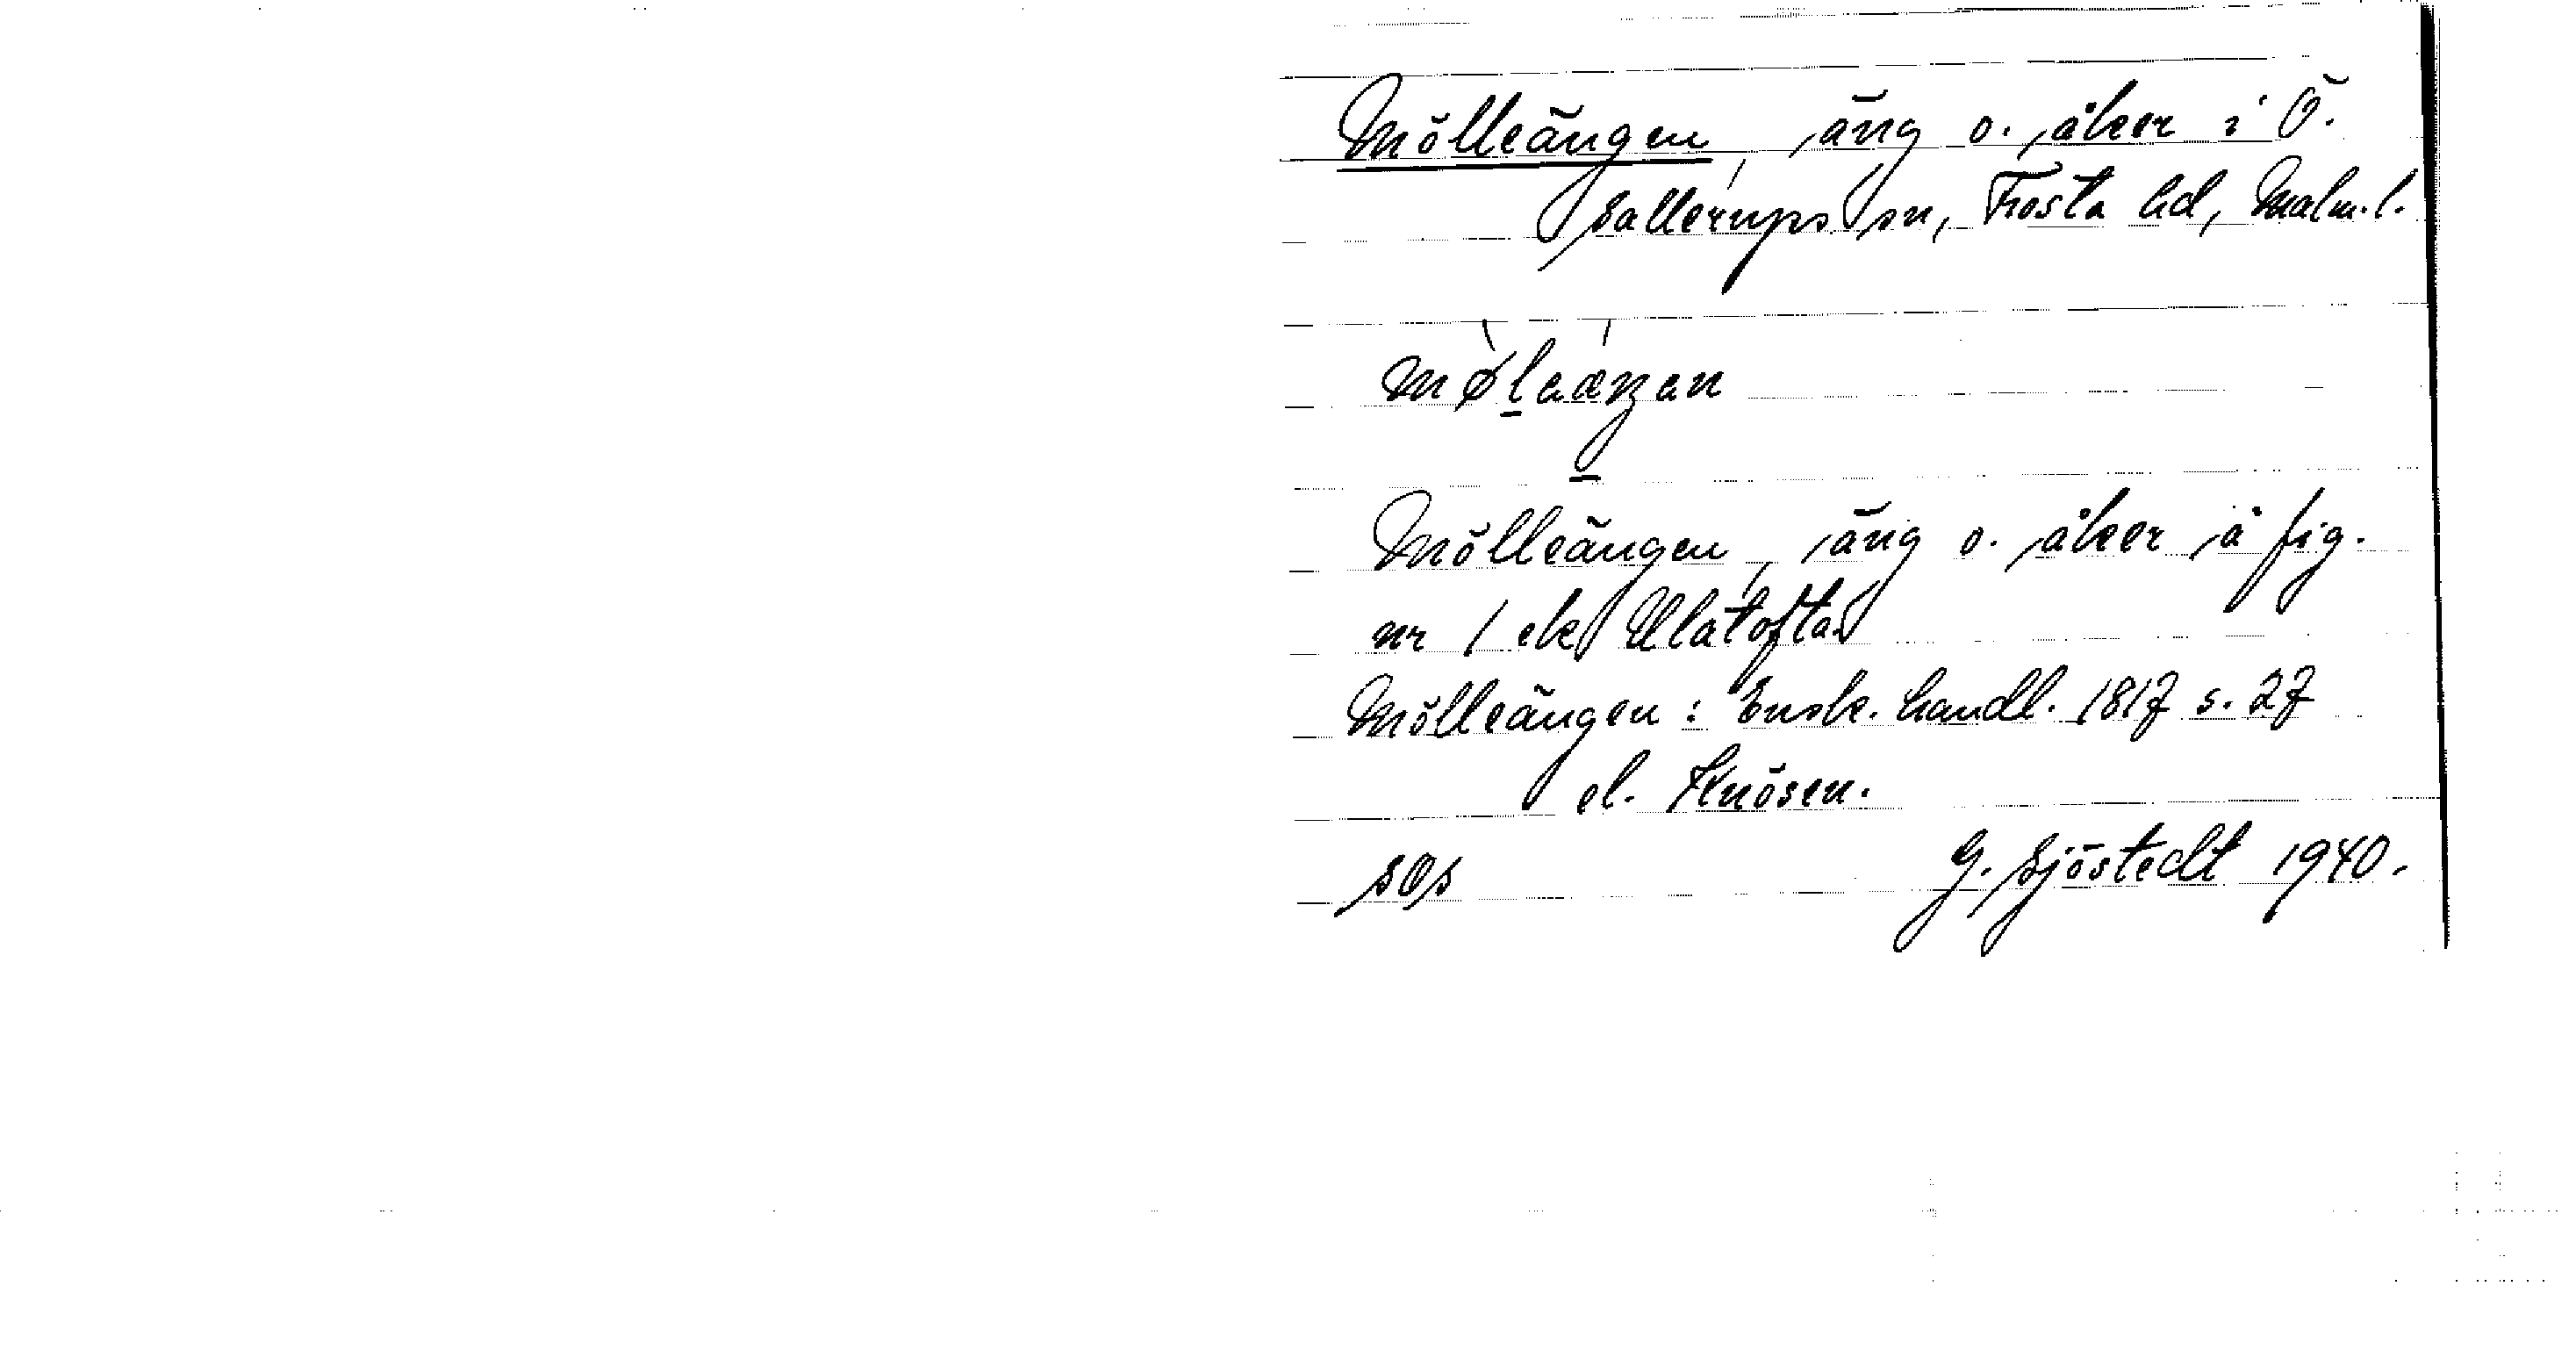 Mölleängen, äng o. åker i Ö.
Sallerups sn, Frosta hd, Malm. l.
Mölleängen, äng o. åker å fig.
nr 1 ek Ulatofta
Mölleängen: Ensk. handl. 1817 s. 27
el. Knösen.
SOS G. Sjöstedt 1940.